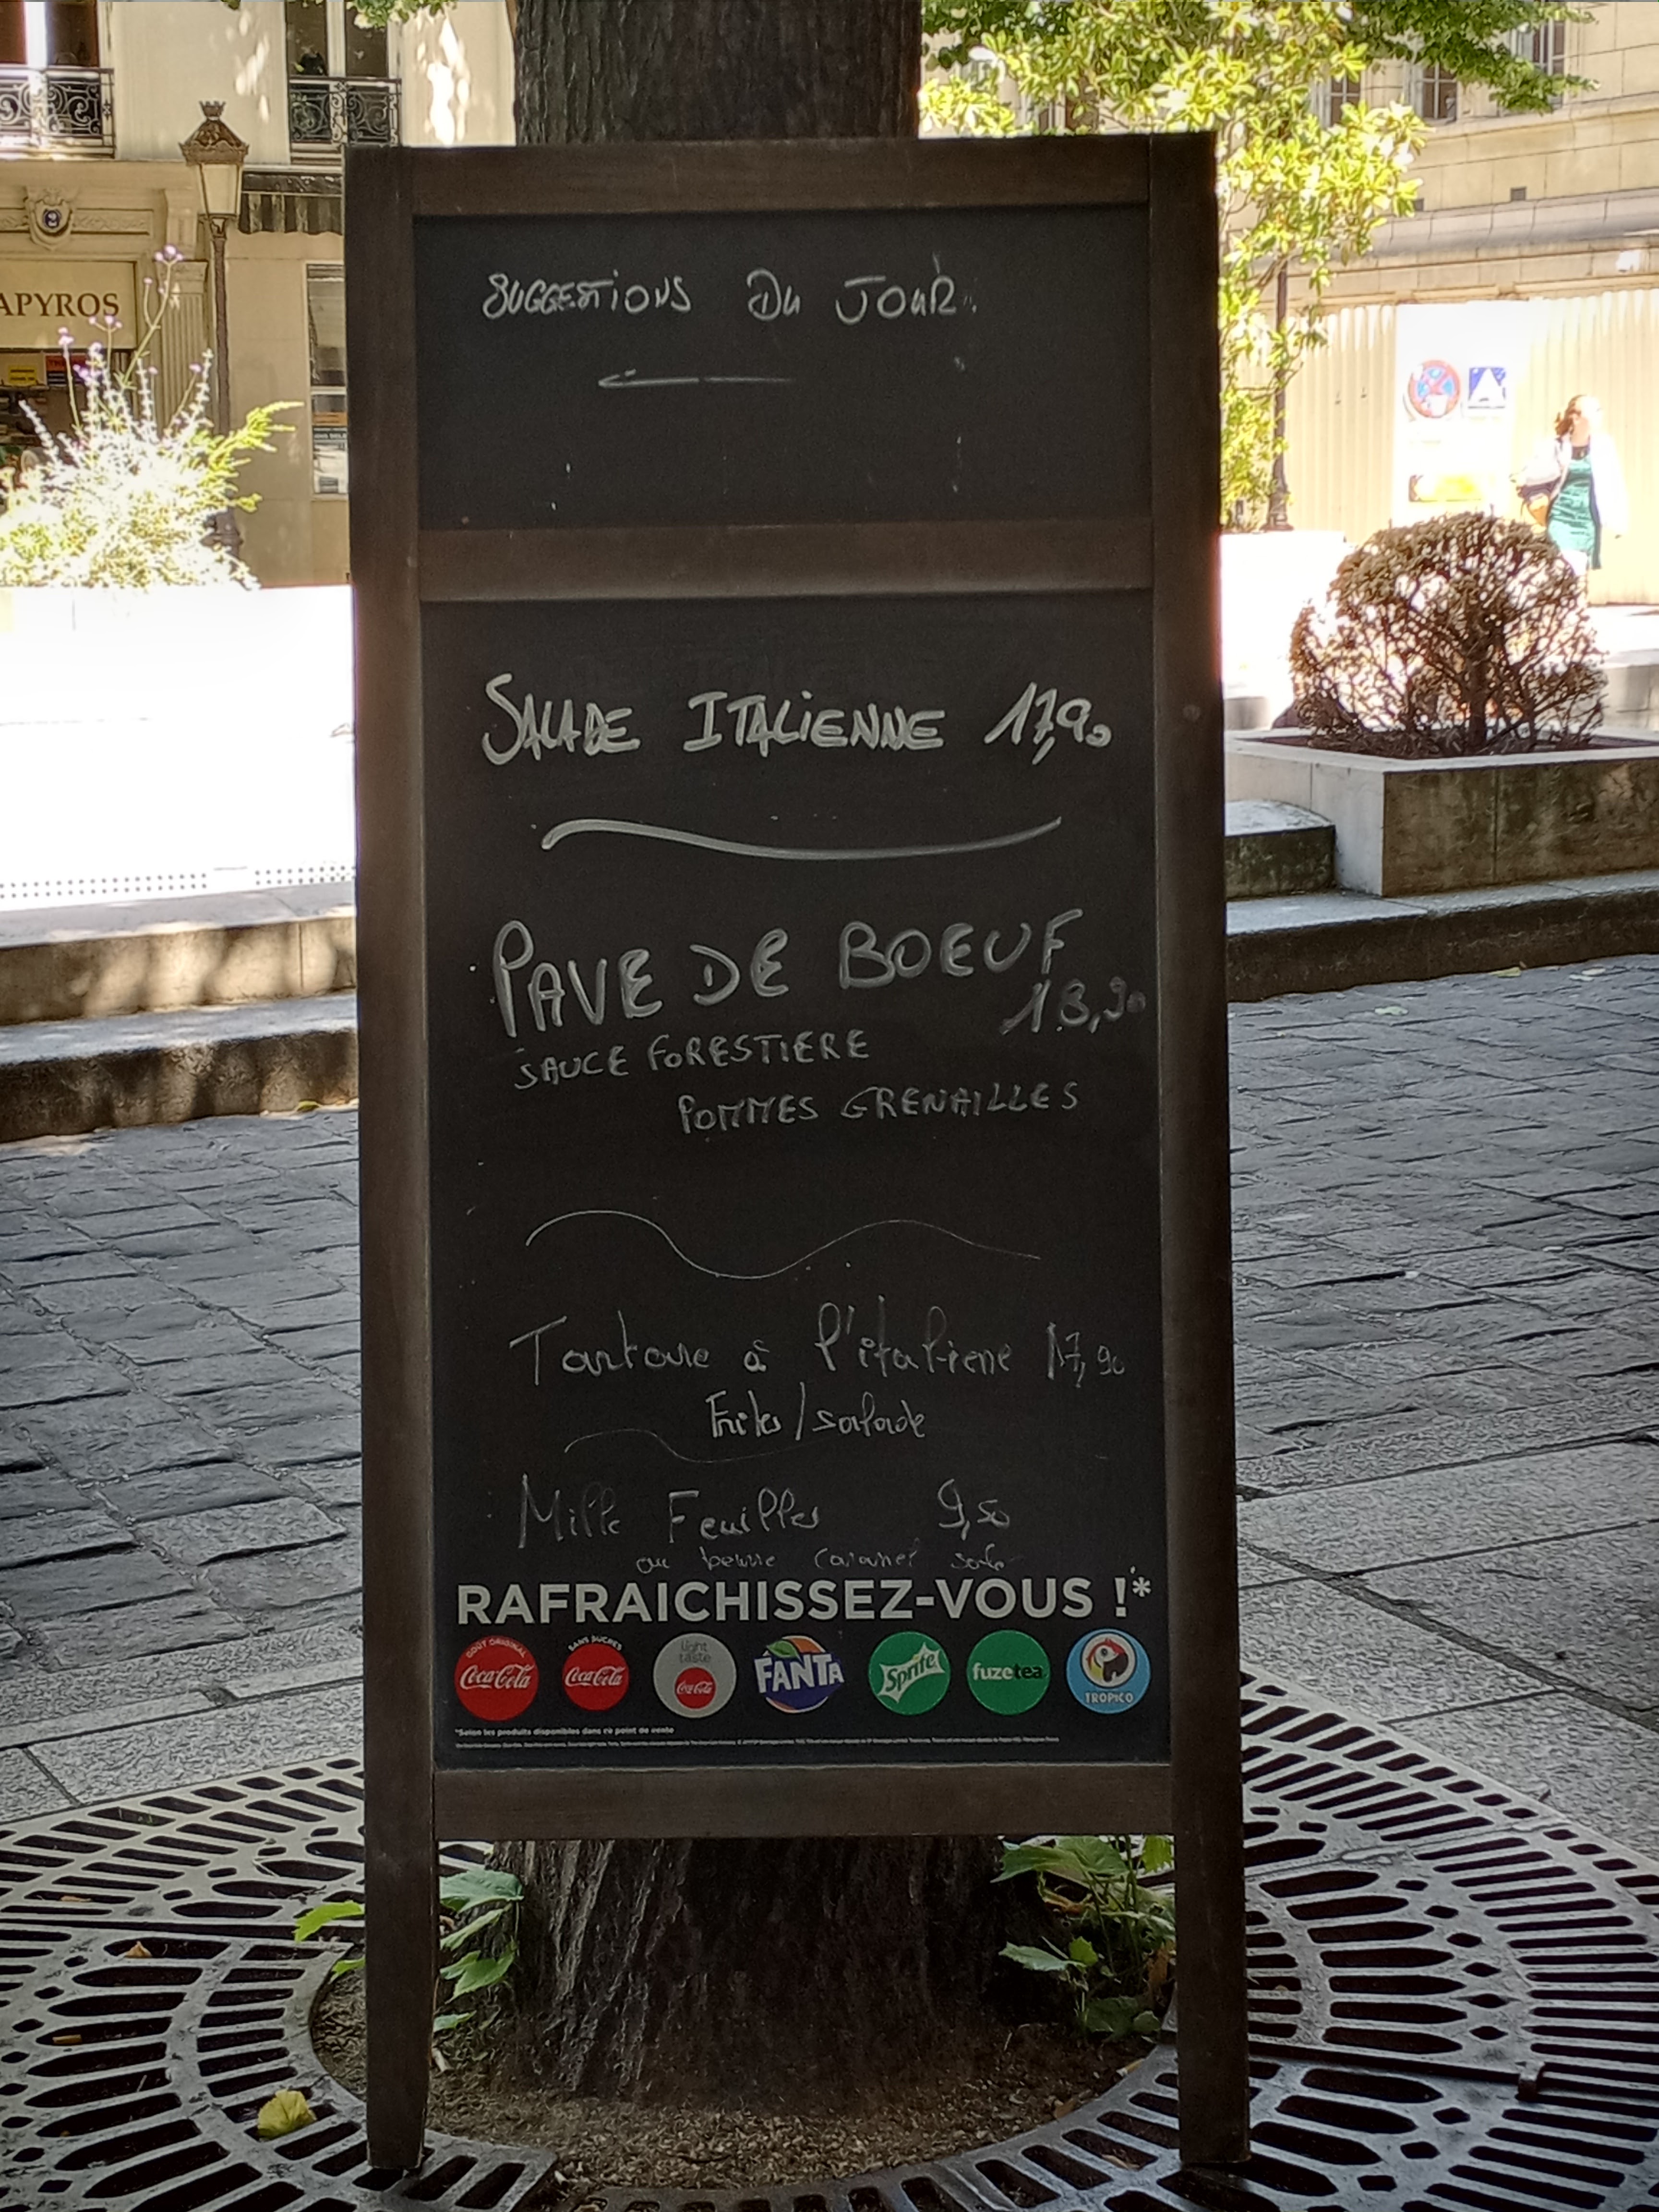 APYROS
2
SUGGESTIONS DU JOUR.
SALADE ITALIENNE 17,90
PAVE DE BOEUF
18,90
SAUCE FORESTIERE
POMMES GRENAILLES
Tartare à l'italiene 17,90
Frites/salade
Mille Feuilles 9,50
au beurre caramel salé
RAFRAICHISSEZ-VOUS !*
GOÛT ORIGINAL
Coca-Cola
SANS SUCRES
Coca-Cola
light taste
Coca-Cola
FANTA
Sprite
fuzetea
TROPICO
*Selon les produits disponibles dans ce point de vente